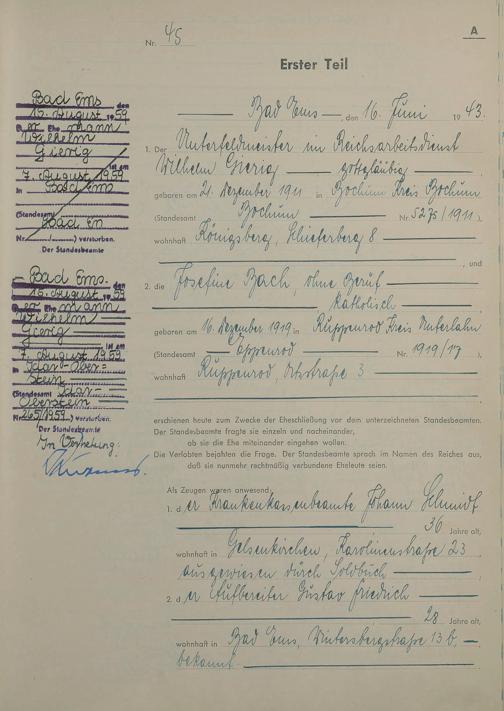 A
Nr. 45
Erster Teil
Bad Ems, den 16. Juni 1943.
1. Der Unterfeldmeister im Reichsarbeitsdienst
Wilhelm Gierig gottgläubig
geboren am 21. Dezember 1911 in Bochum Kreis Bochum
(Standesamt Bochum Nr. 5275/1911)
wohnhaft Königsberg, Schieferberg 8
, und
2. die Josefine Bach, ohne Beruf
katholisch
geboren am 16. Dezember 1919 in Ruppenrod Kreis Unterlahn
(Standesamt Eppenrod Nr. 1919/17).
wohnhaft Ruppenrod, Ortsstraße 3
erschienen heute zum Zwecke der Eheschließung vor dem unterzeichneten Standesbeamten.
Der Standesbeamte fragte sie einzeln und nacheinander,
ob sie die Ehe miteinander eingehen wollen.
Die Verlobten bejahten die Frage. Der Standesbeamte sprach im Namen des Reiches aus,
daß sie nunmehr rechtmäßig verbundene Eheleute seien.
Als Zeugen waren anwesend:
1. der Krankenkassenbeamte Johann Schmidt
36 Jahre alt,
wohnhaft in Gelsenkirchen, Karolinenstraße 23
ausgewiesen durch Soldbuch
2. der Aufbereiter Gustav Friedrich
28 Jahre alt,
wohnhaft in Bad Ems, Wintersbergstraße 13 b,
bekannt
Bad Ems den
15. August 1959
Der Ehemann
Wilhelm
Gierig
ist am
7. August 1959
in Bad Ems
(Standesamt Bad Em
Nr. / ) verstorben.
Der Standesbeamte
Bad Ems. den
15. August 1959
Der Ehemann
Wilhelm
Gierig
ist am
7. August 1959
in Idar-Ober=
stein
(Standesamt Idar-
Oberstein
Nr. 265/1959) verstorben.
Der Standesbeamte
In Vertretung: